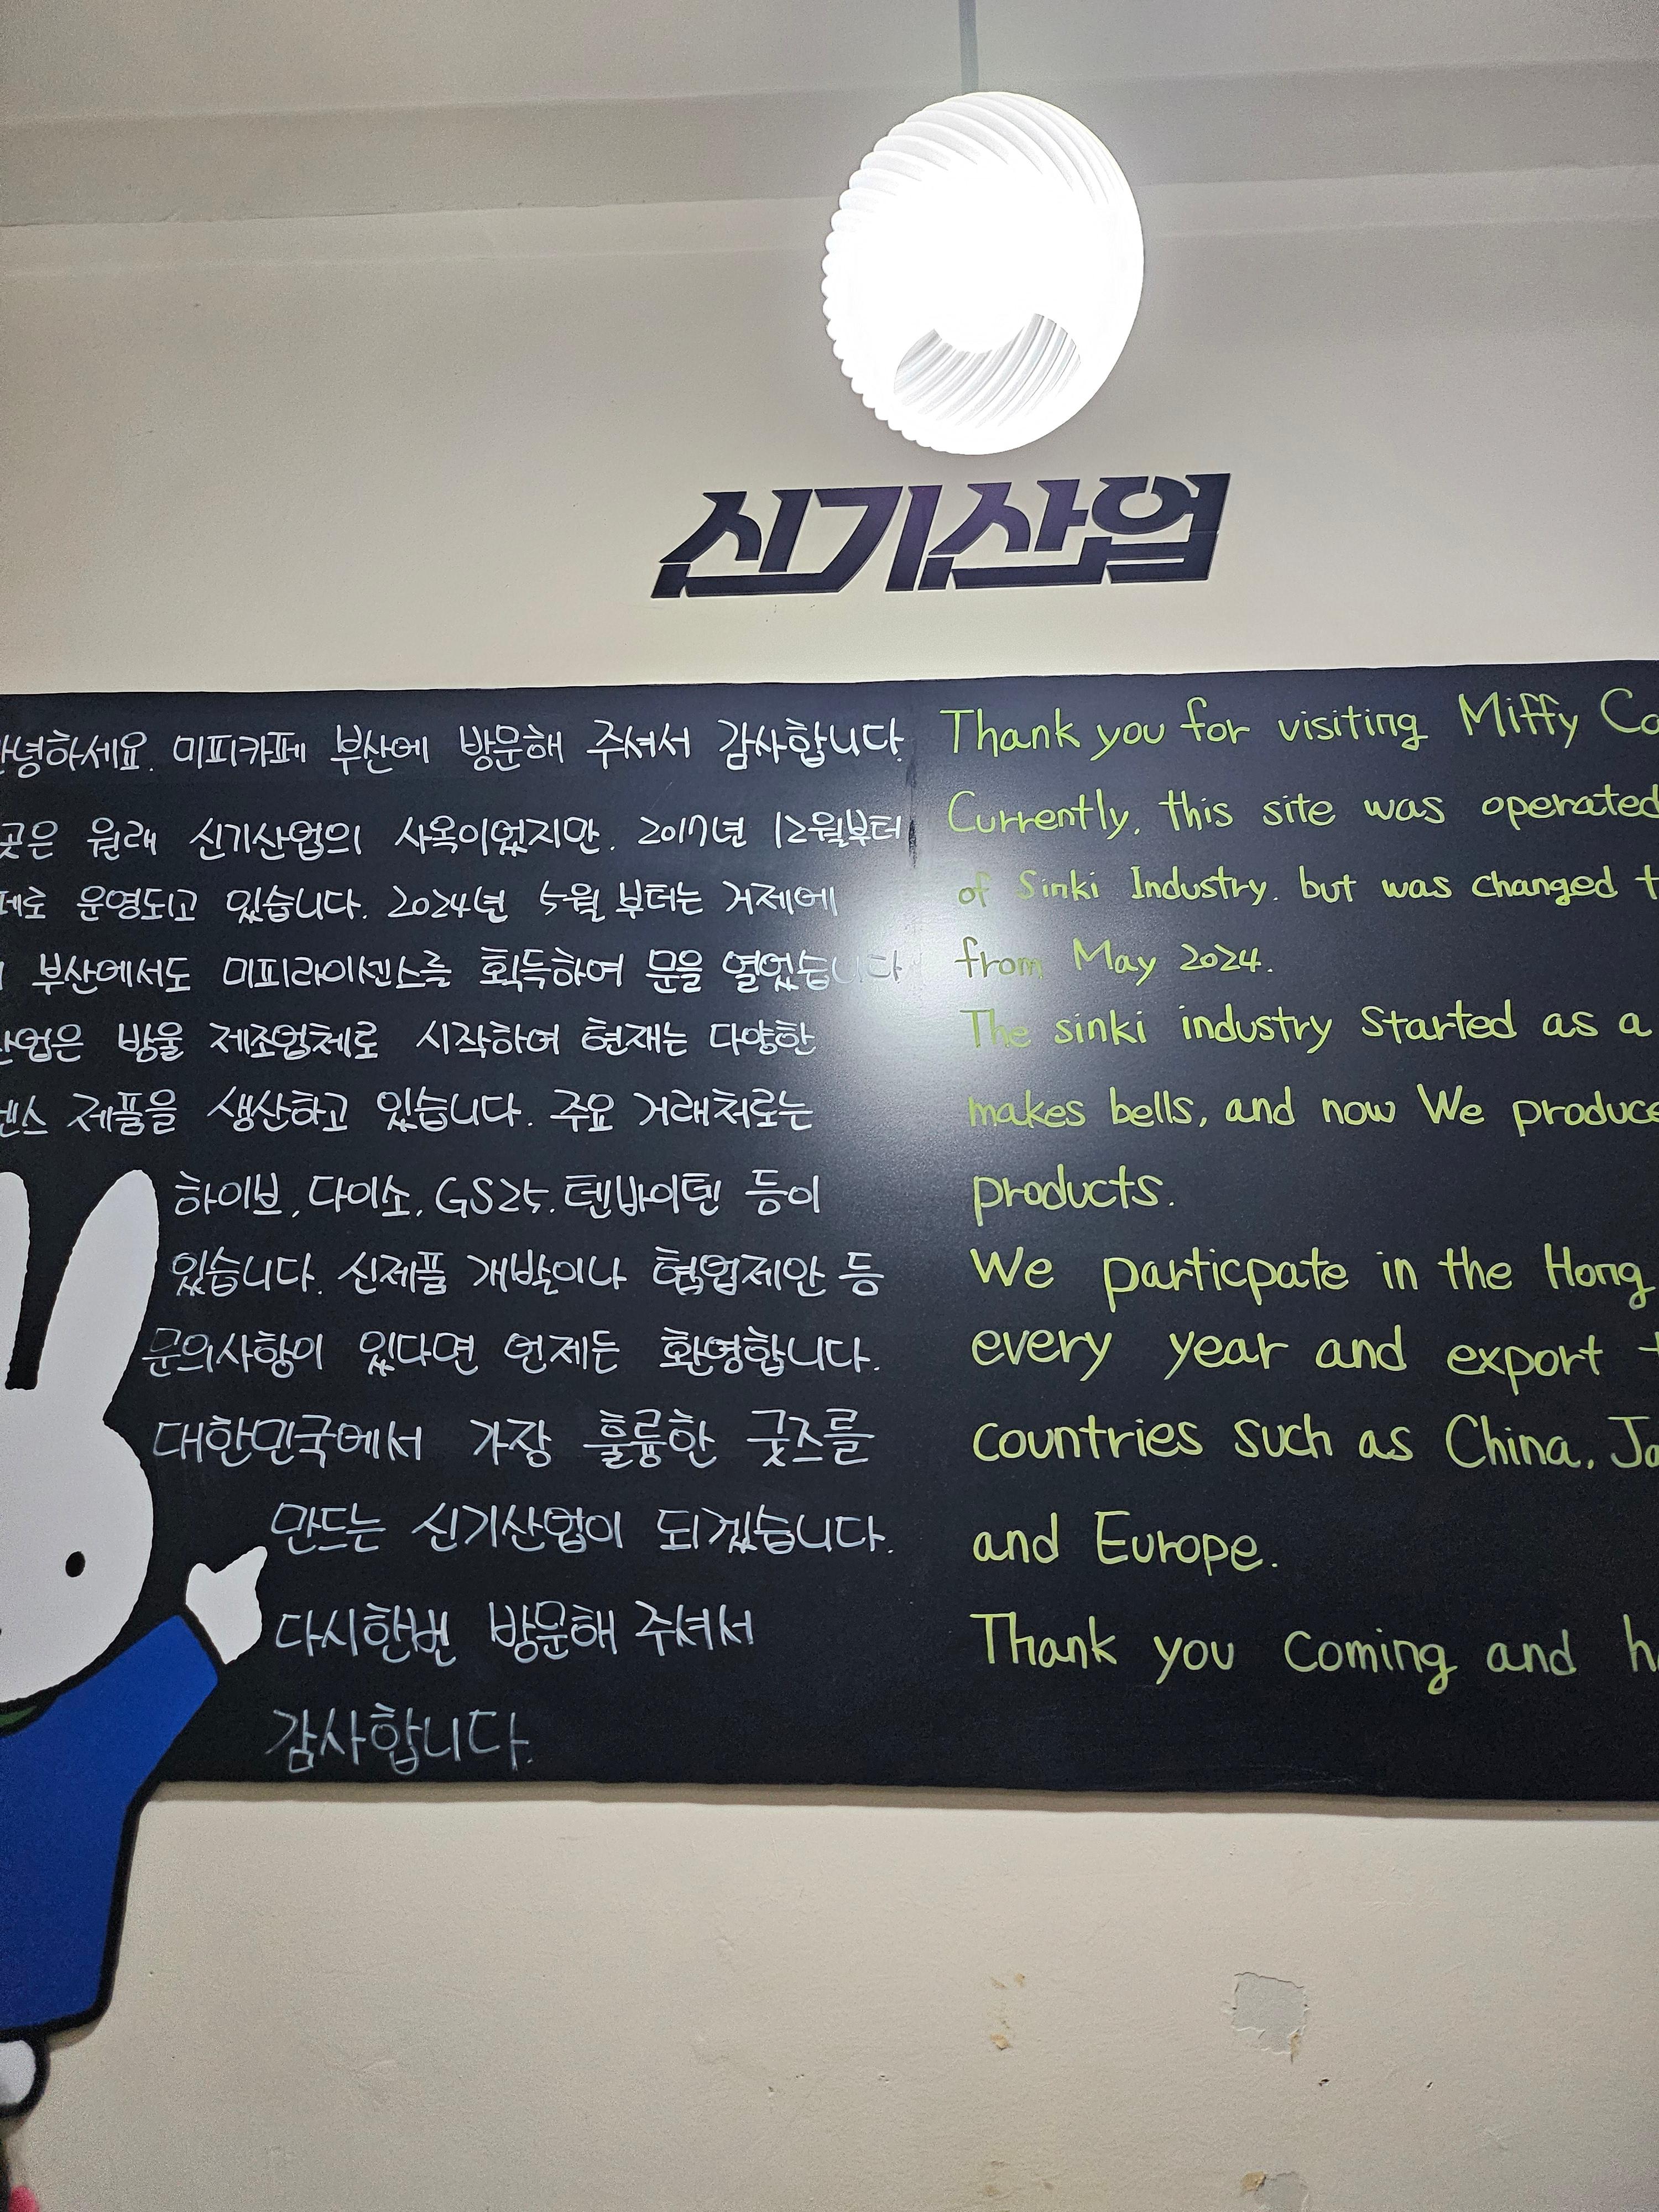 신기산업
안녕하세요. 미피카페 부산에 방문해 주셔서 감사합니다.
곳은 원래 신기산업의 사옥이었지만. 2017년 12월부터
페로 운영되고 있습니다. 2024년 5월 부터는 거제에
부산에서도 미피라이센스를 획득하여 문을 열었습니다
산업은 방울 제조업체로 시작하여 현재는 다양한
센스 제품을 생산하고 있습니다. 주요 거래처로는
하이브, 다이소, GS25. 텐바이텐 등이
있습니다. 신제품 개발이나 협업제안 등
문의사항이 있다면 언제든 환영합니다.
대한민국에서 가장 훌륭한 굿즈를
만드는 신기산업이 되겠습니다.
다시한번 방문해 주셔서
감사합니다.
Thank you for visiting Miffy
Currently, this site was operated
of Sinki Industry. but was changed
from May 2024.
The sinki industry Started as a
makes bells, and now We produce
products.
We particpate in the Hong
every year and export
countries such as China,
and Europe.
Thank you Coming and